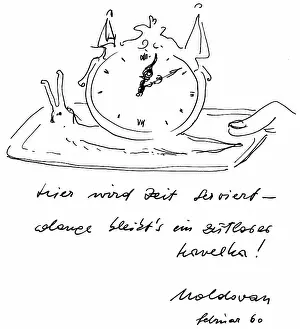 hier wird Zeit serviert –
solange bleibt's ein zeitloses
Hawelka!
Moldovan
Februar 60